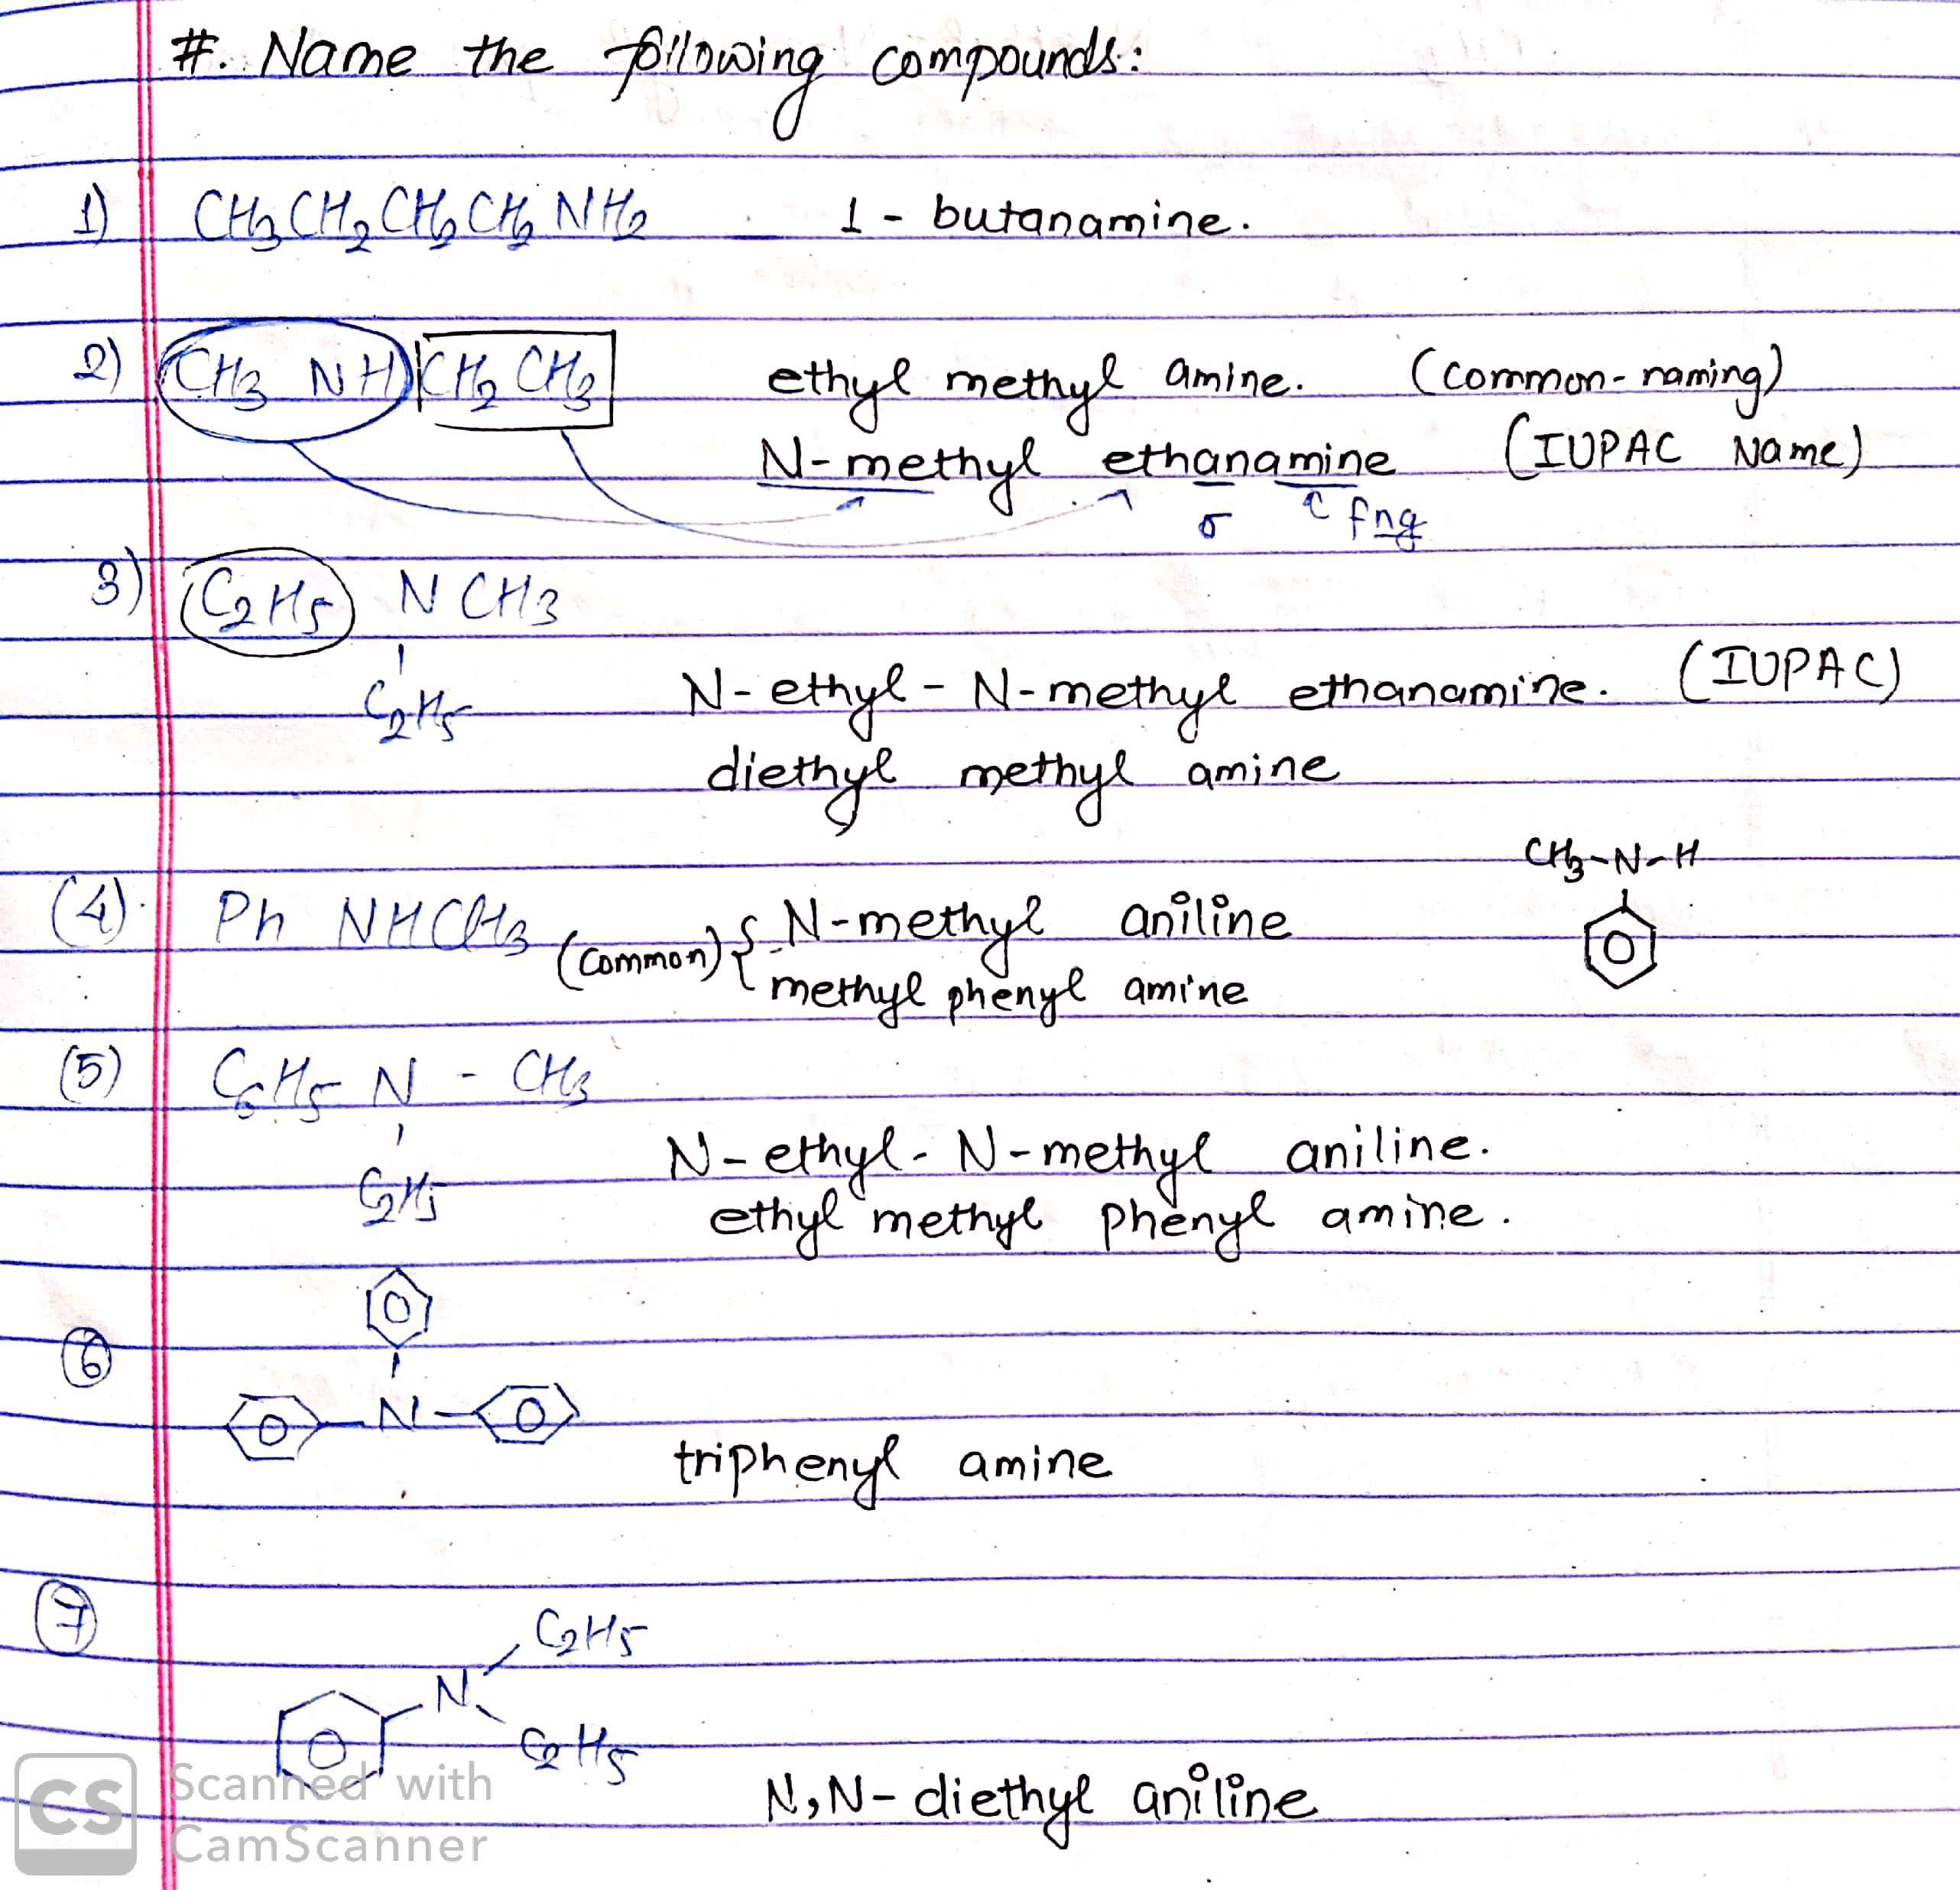 #. Name the following compounds:
1) CH3CH2CH2CH2NH2 1 - butanamine.
2) CH3 NH CH2 CH3 ethyl methyl amine. (common-naming)
N-methyl ethanamine (IUPAC Name)
σ fng
3) C2H5 N CH3
C2H5 N-ethyl-N-methyl ethanamine. (IUPAC)
diethyl methyl amine
CH3-N-H
(4) Ph NHCH3 (common) { N-methyl aniline
methyl phenyl amine
(5) C6H5 N - CH3
C2H5 N-ethyl-N-methyl aniline.
ethyl methyl phenyl amine.
6
N
triphenyl amine
7 C2H5
N
C2H5
N,N-diethyl aniline
CS Scanned with
CamScanner